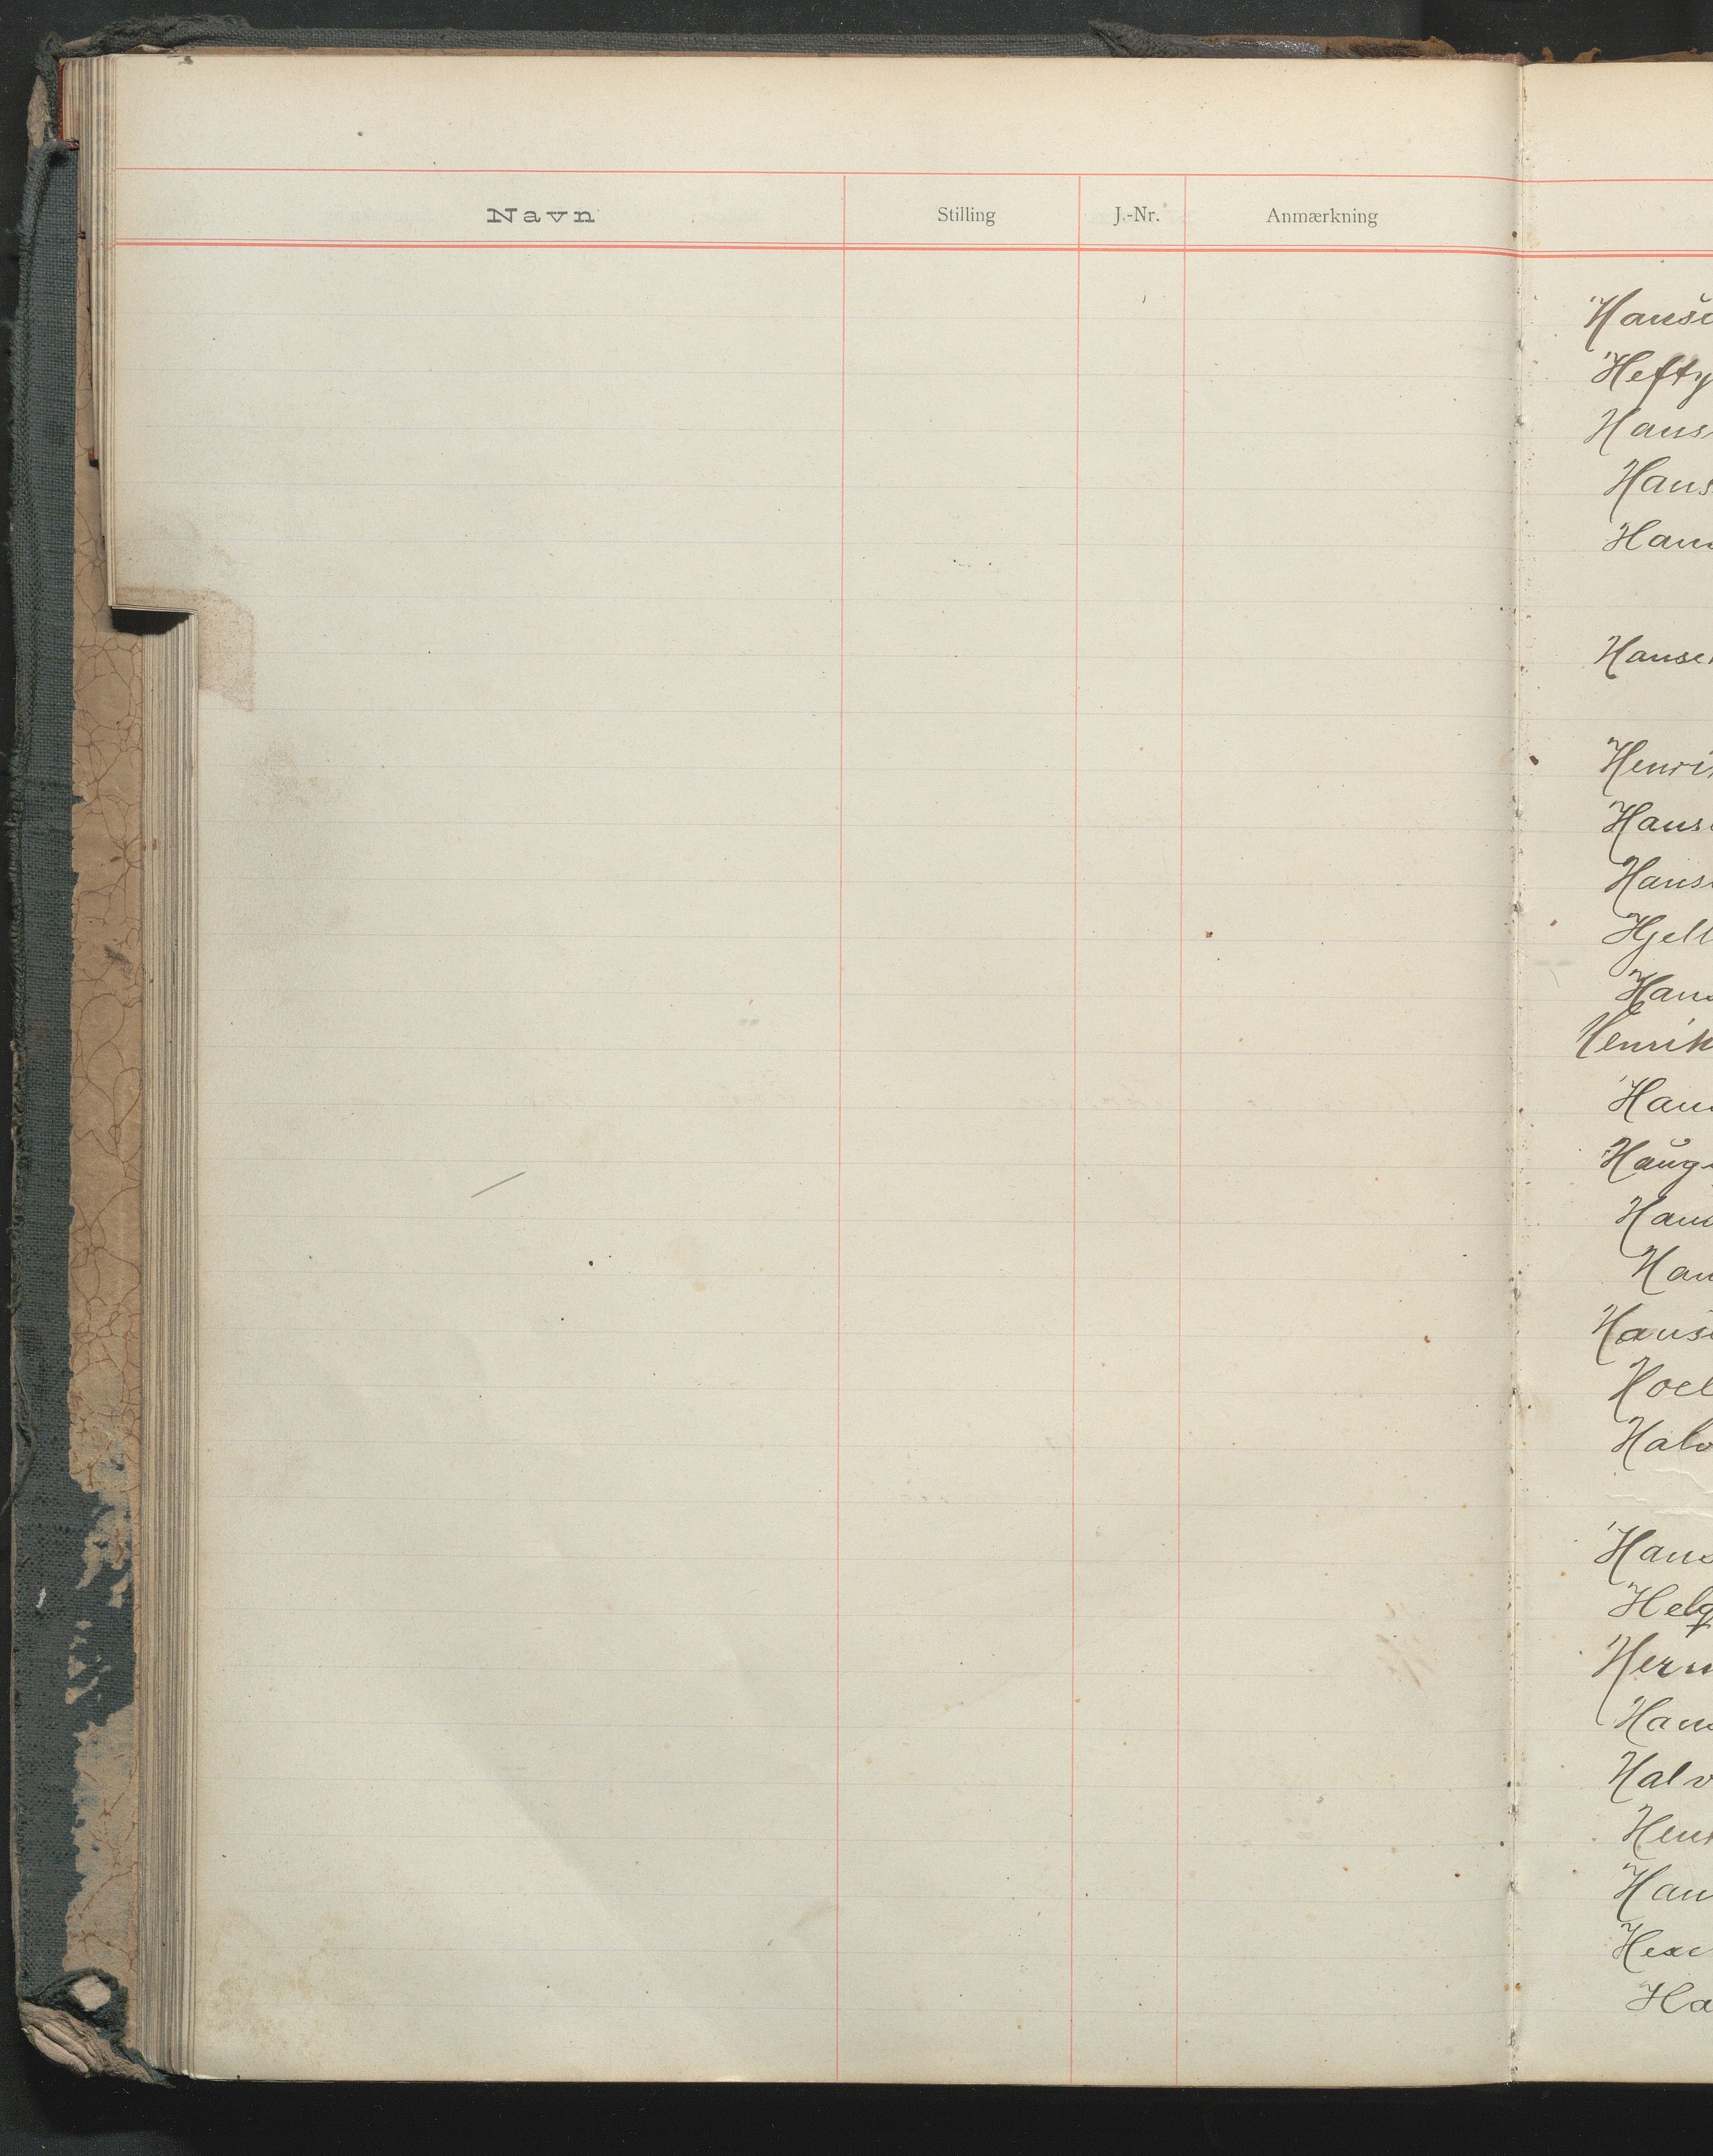 Navn Stilling J.-Nr. Anmærkning
Hanse
Hefty
Hans
Hans
Han
Hansen
Henri
Hans
Hans
Hjell
Han
Henrik
Han
Haug
Han
Han
Hans
Hoel
Halv
Han
Helg
Herm
Han
Halv
Hen
Han
Ha